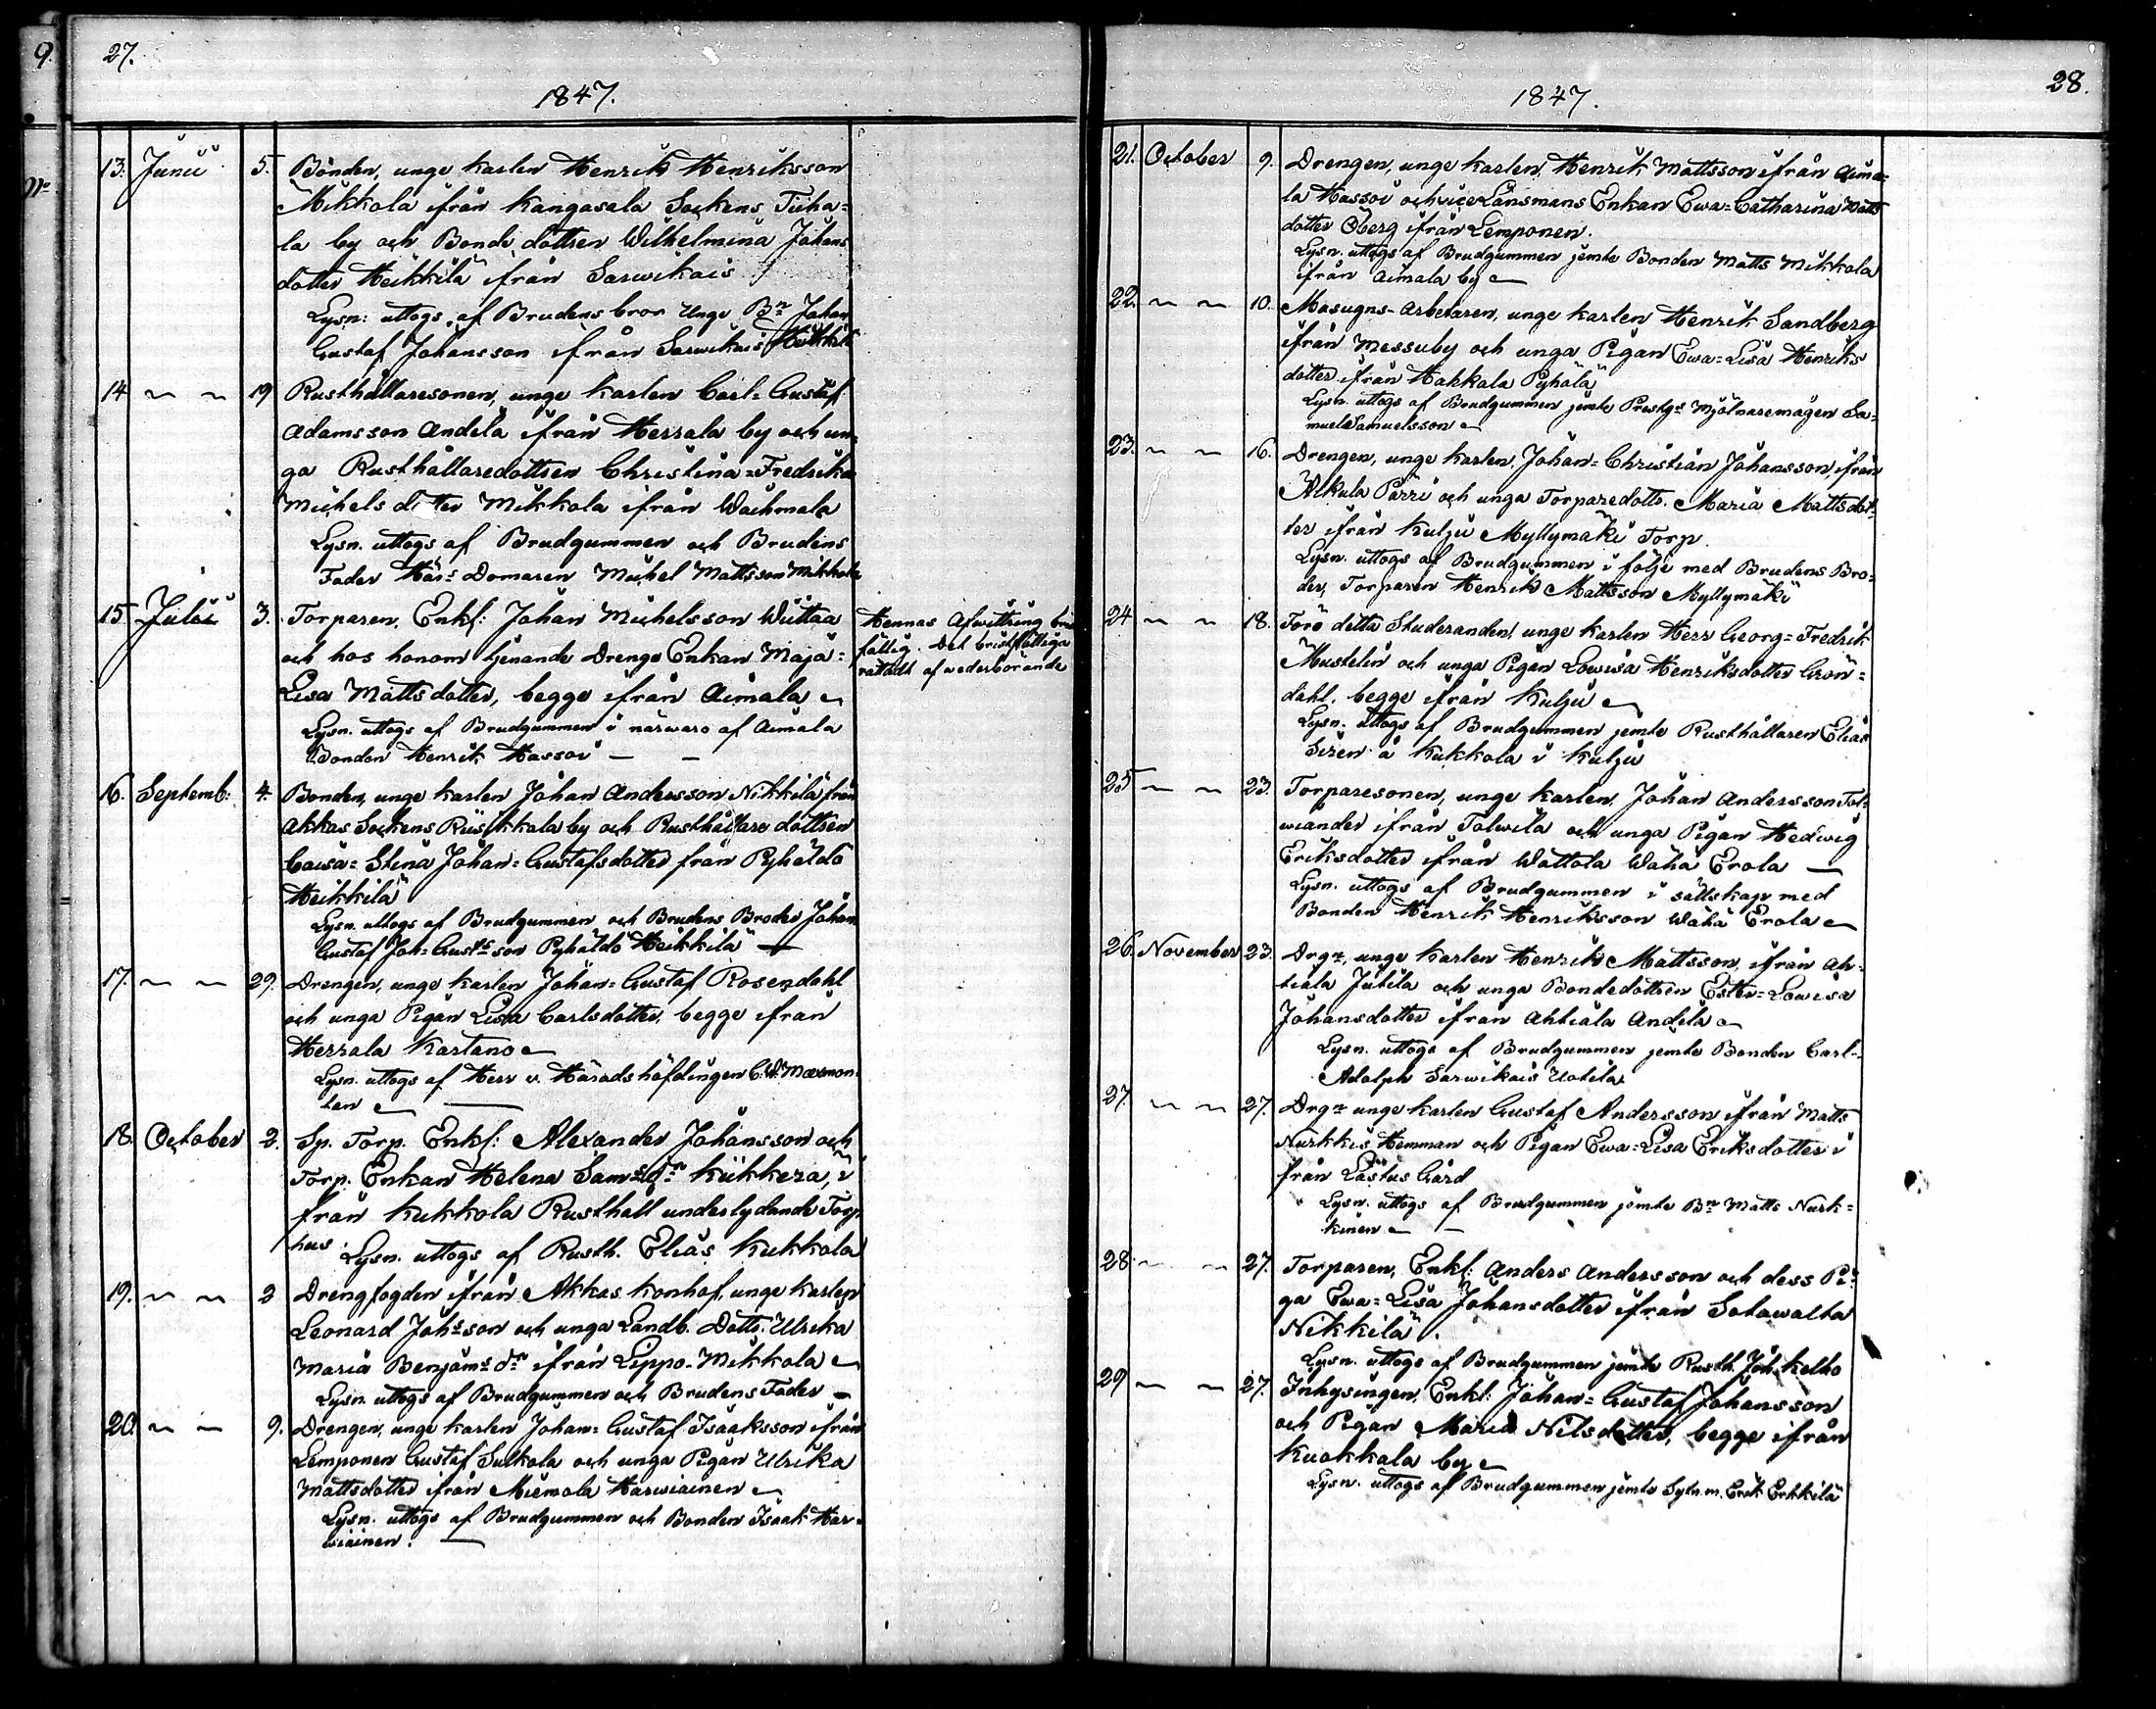 9.
27.
1847.
No
13. Junii 5. Bonden, unge karlen Henrik Henriksson
Mikkola ifrån Kangasala Sockens Tiiha=
la by och Bonde dottren Wilhelmina Johans
dotter Heikkilä ifrån Sarwikais
Lysn: uttogs af Brudens bror Unge Bn Johan
Gustaf Johansson ifrån Sarwikais Heikkilä
14 〃 〃 19 Rusthållaresonen, unge karlen Carl=Gustaf
Adamsson Andila ifrån Herrala by och un=
ga Rusthållaredottren Christina=Fredrika
Michelsdotter Mikkola ifrån Wachmala
Lysn. uttogs af Brudgummen och Brudens
Fader Härs Domaren Michel Mattsson Mikkola
15. Julii 3. Torparen, Enkl: Johan Michelsson
och hos honom tjenande Drengs Enkan Maja=
Lisa Mattsdotter, begge ifrån Aimala
Lysn. uttogs af Brudgummen i närwaro af Aimala
Bonden Henrik Hassoi
Hennas Afwittring
fällig. Det bristfälliga
rättadt af wederbörande
16. Septemb: 4. Bonden, unge karlen Johan Andersson Nikkilä från
Akkas Sockens Riisikkala by och Rusthållare dottren
Caisa=Stina Johan=Gustafsdotter från Pyhäldö
Heikkilä
Lysn. uttogs af Brudgummen och Brudens Broder Johan
Gustaf Joh=Gusts son Pyhäldö Heikkilä
17. 〃 〃 29. Drengen, unge karlen Johan=Gustaf Rosendahl
och unga Pigan Lisa Carlsdotter, begge ifrån
Herrala Kartano
Lysn. uttogs af Herr v. Häradshöfdingen C.W. Maxmon=
tan
18. October 2. Sp. Torp. Enkl: Alexander Johansson och
Torp. Enkan Helena Sams dr Kiikkera, i
från Kukkola Rusthåll underlydande Torp.
hus Lysn. uttogs af Rusth. Elias Kukkola
19. 〃 〃 2 Drengfogden ifrån Akkas Konhof, unge karlen
Leonard Johsson och unga Landb. Dottr. Ulrika
Maria Benjams dr ifrån Lippo-Mikkola
Lysn. uttogs af Brudgummen och Brudens Fader
20. 〃 〃 9. Drengen, unge karlen Johan=Gustaf Isaaksson ifrån
Lemponen Gustaf Sulkola och unga Pigan Ulrika
Mattsdotter ifrån Miemola Harwiainen
Lysn. uttogs af Brudgummen och Bonden Isaak Har=
wiainen.
28.
1847.
21. October 9. Drengen, unge karlen, Henrik Mattsson ifrån Aima=
la Hassoi och vice Länsmans Enkan Ewa=Catharina Matts
dotter Öberg ifrån Lemponen.
Lysn. uttogs af Brudgummen jemte Bonden Matts Mikkola
ifrån Aimala by
22. 〃 〃 10. Masugns-Arbetaren, unge karlen Henrik Sandberg
ifrån Messuby och unga Pigan Ewa=Lisa Henriks
dotter ifrån Hakkala Pyhälä
Lysn. uttogs af Brudgummen jemte Prestgs Mjölnaremågen Sa=
muel Samuelsson
23. 〃 〃 16. Drengen, unge karlen, Johan=Christian Johansson, ifrån
Alkula Pärri och unga Torparedottr. Maria Mattsdot=
ter ifrån Kulju Myllymäki Torp.
Lysn. uttogs af Brudgummen i följe med Brudens Bro=
der, Torparen Henrik Mattsson Myllymäki
24 〃 〃 18. Före detta Studeranden unge karlen Herr Georg=Fredrik
Mustelin och unga Pigan Lowisa Henriksdotter Grön=
dahl, begge ifrån Kulju
Lysn. uttogs af Brudgummen jemte Rusthållaren Elias
Siren å Kukkola i Kulju
25 〃 〃 23. Torparesonen, unge karlen, Johan Andersson Tol=
wiander ifrån Tolwila och unga Pigan Hedwig
Eriksdotter ifrån Wättola Wähä Erola
Lysn. uttogs af Brudgummen i sällskap med
Bonden Henrik Henriksson Wähä Erola
26. November 23. Drgn, unge karlen Henrik Mattsson, ifrån Ah=
tiala Jutila och unga Bondedottren Ester=Lowisa
Johansdotter ifrån Ahtiala Andila
Lysn. uttogs af Brudgummen jemte Bonden Carl=
Adolph Sarwikais Uotila
27. 〃 〃 27. Drgn unge karlen Gustaf Andersson ifrån Matts
Nurkkis Hemman och Pigan Ewa=Lisa Eriksdotter i
från Lästus Gård
Lysn. uttogs af Brudgummen jemte Bn Matts Nurk=
kinen
28. 〃 〃 27. Torparen, Enkl: Anders Andersson och dess Pi=
ga Ewa=Lisa Johansdotter ifrån Sotawalta
Nikkilä.
Lysn. uttogs af Brudgummen jemte Rusth. Joh. Kelho
29 〃 〃 27. Inhysingen, Enkl: Johan=Gustaf Johansson
och Pigan Maria Nilsdotter, begge ifrån
Kuokkala by
Lysn. uttogs af Brudgummen jemte Sytn.m. Erik Erkkilä